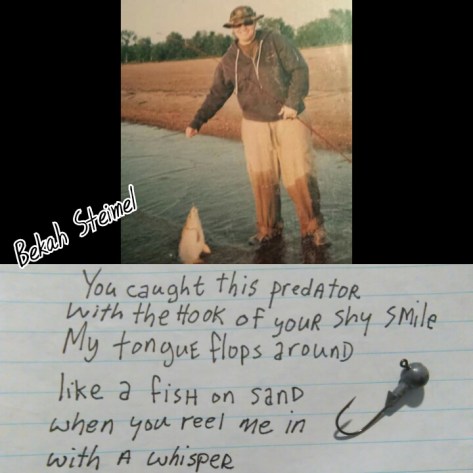 Bekah Steimel
You caught this predator
with the Hook of your shy smile
My tongue flops around
like a fish on sand
when you reel me in
with a whisper